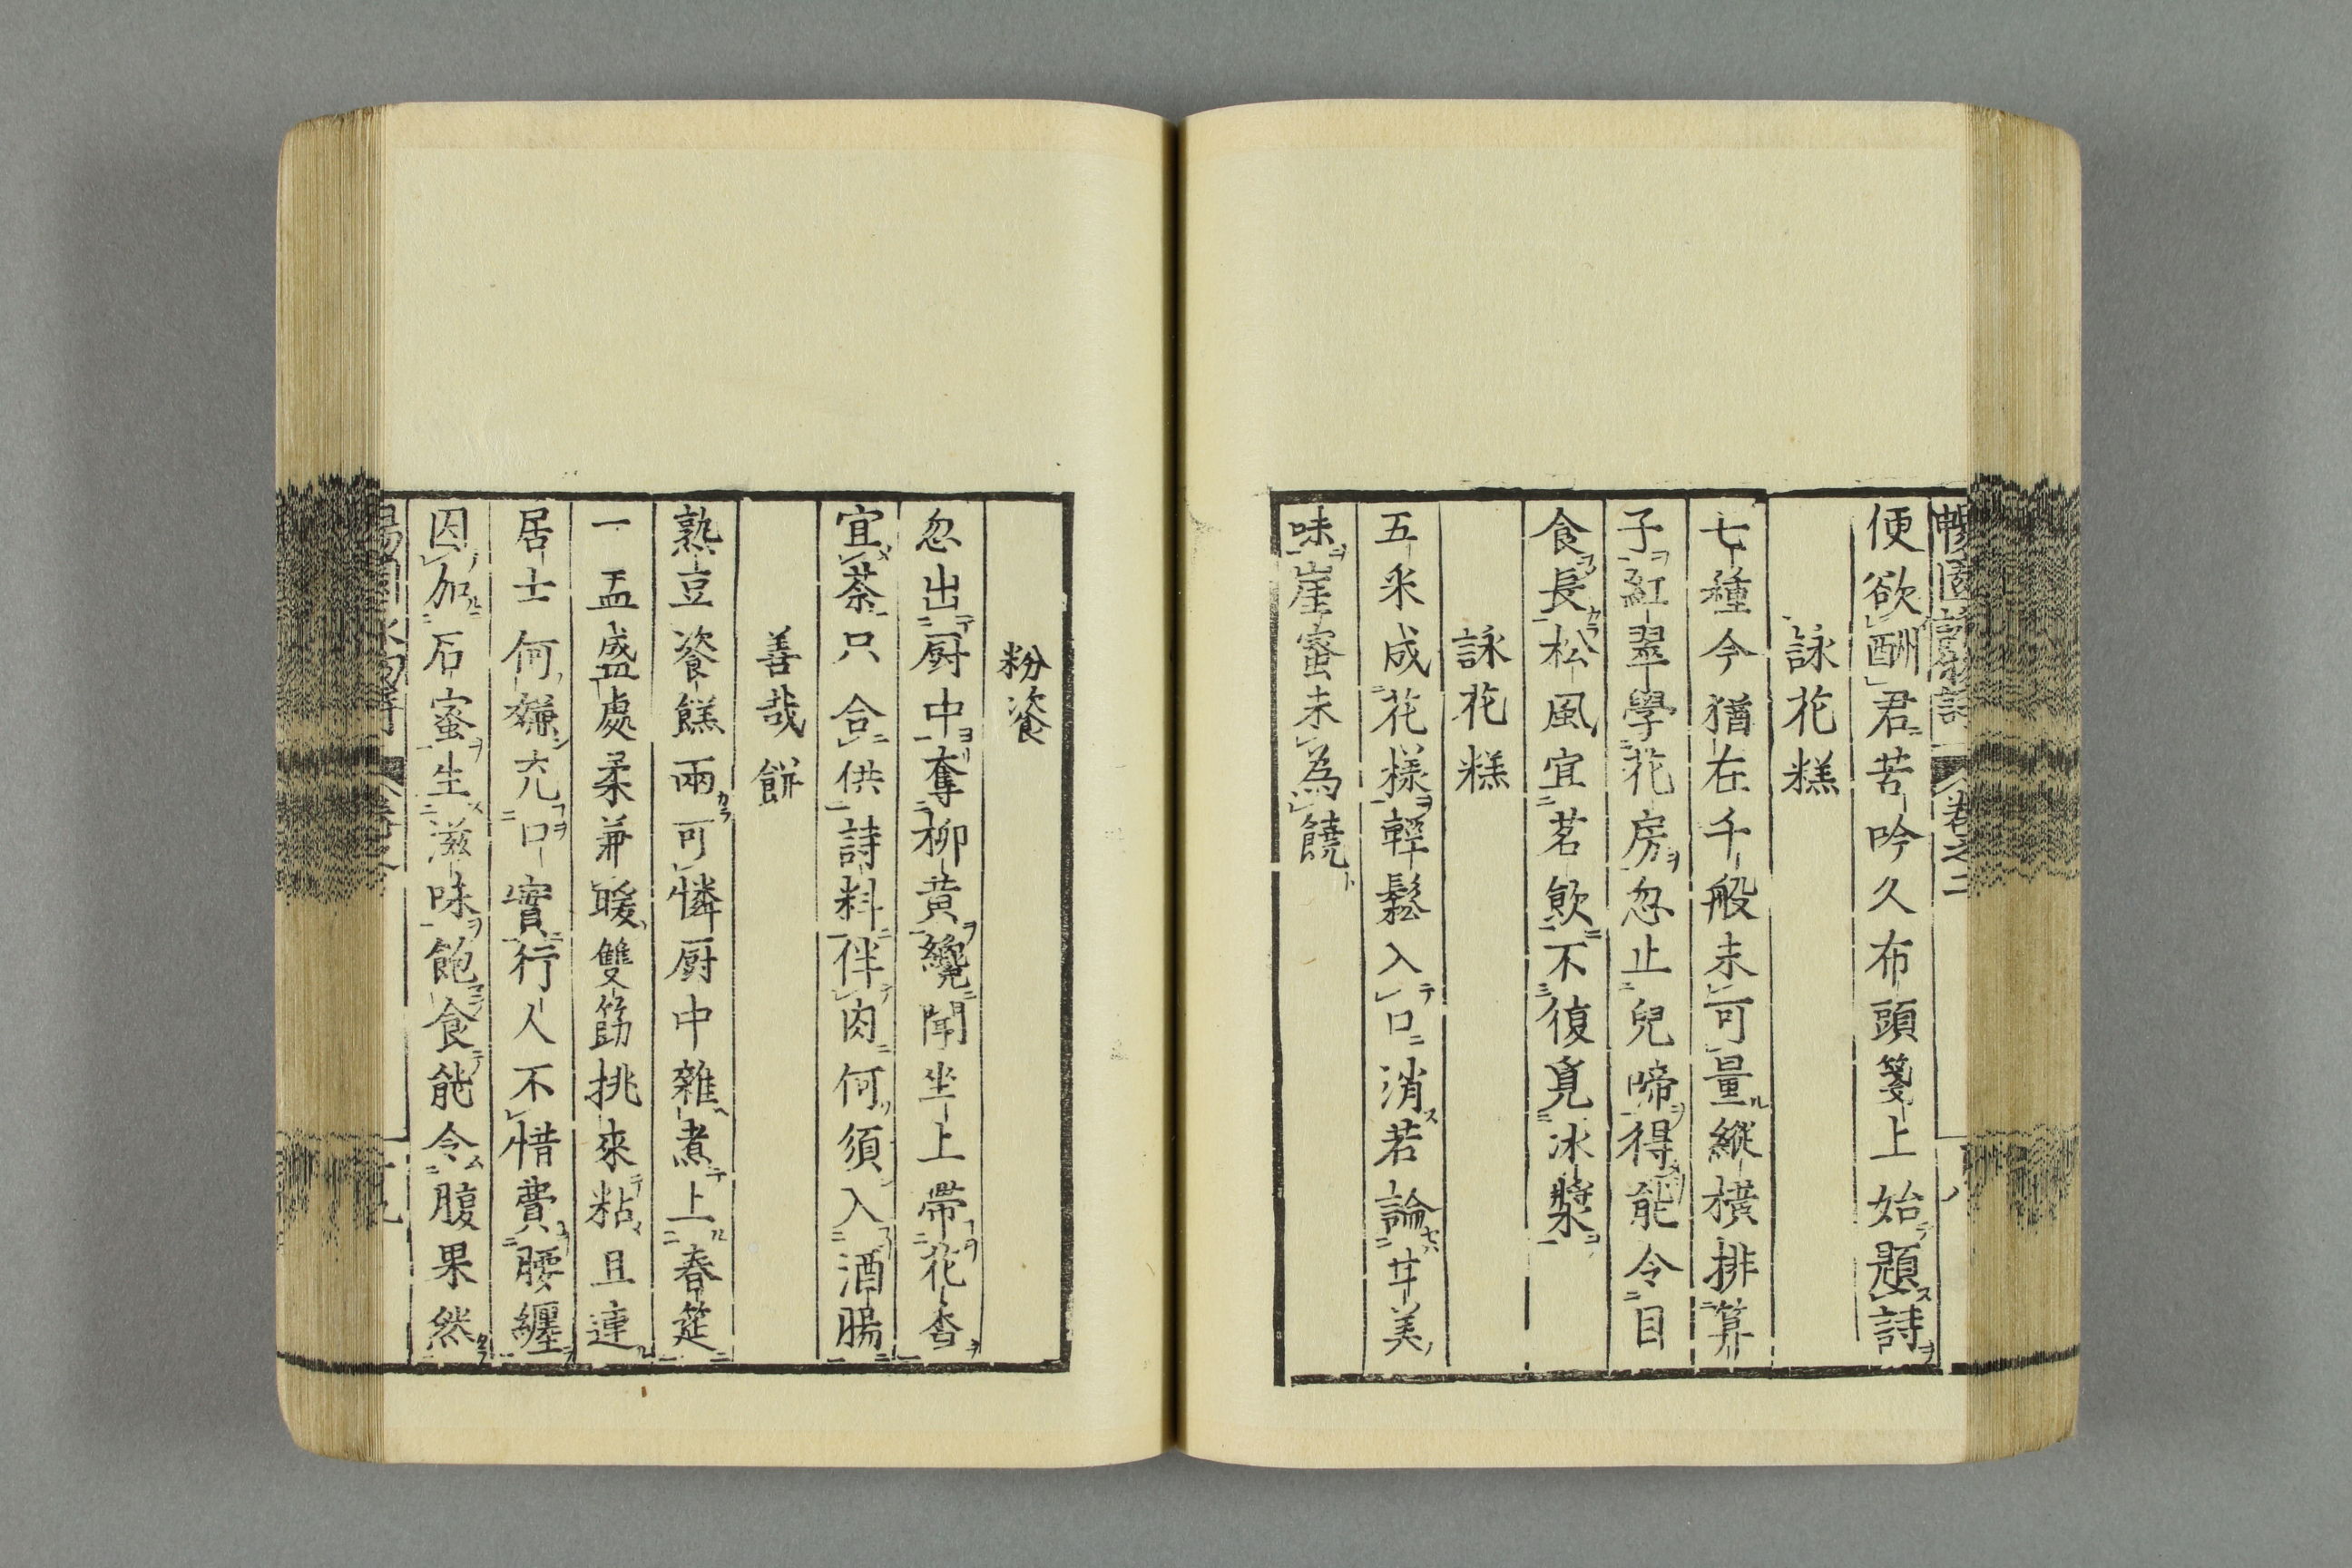 便欲酬君苦吟久布頭箋上始題詩
詠花糕
七種今猶在千般未可量縱橫排算
子紅翠學花房忽止兒啼得能令目
食長松風宜茗飲不復覓冰漿
詠花糕
五釆成花様輕鬆入口消若論甘美
味崖蜜未為饒
粉餈
忽出厨中奪柳黄纔聞坐上帶花香
宜茶只合供詩料伴肉何須入酒腸
善哉餅
熟豆餈餻兩可憐厨中雜煮上春筵
一盂盛處柔兼暖雙筯挑來粘且連
居士何嫌充口實行人不惜費腰纏
因加石蜜生滋味飽食能令腹果然